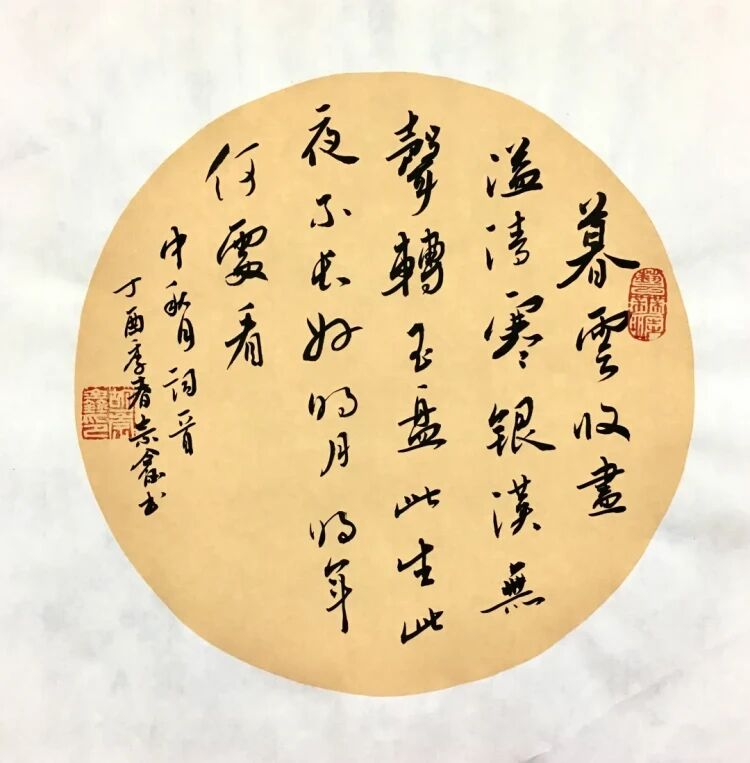 暮雲收盡
溢清寒銀漢無
聲轉玉盤此生此
夜不長好明月明年
何處看
中秋月詞一首
丁酉季春崇鑫書